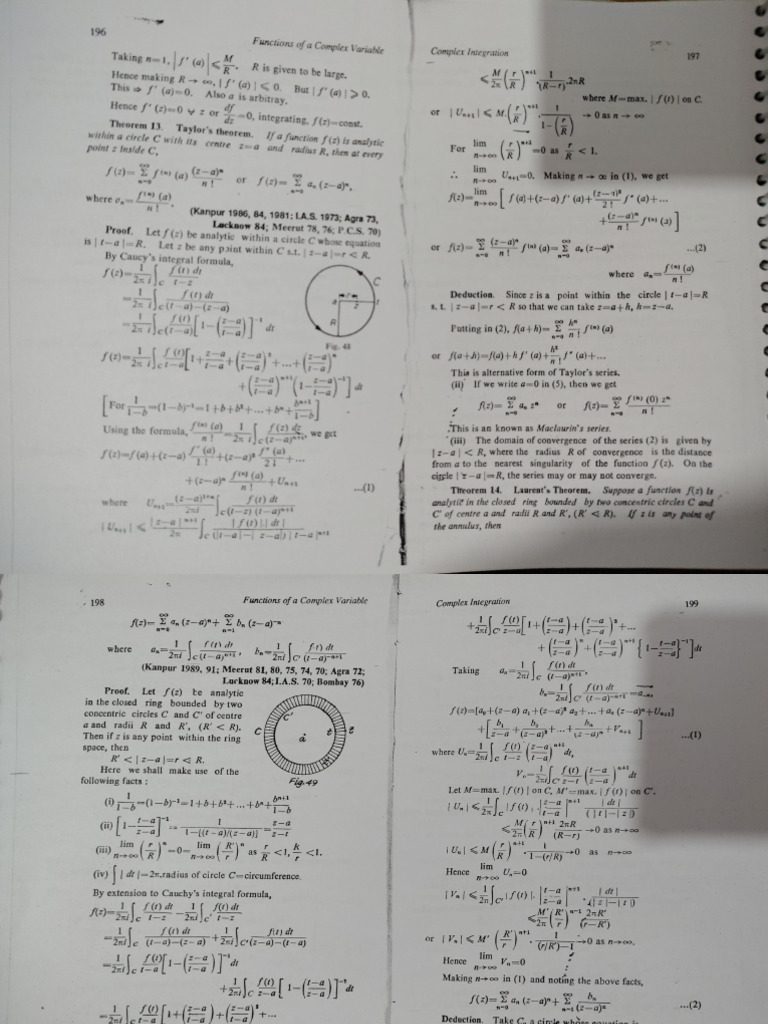 196
Functions of a Complex Variable
Taking n=1, | f' (a) | ⩽ M/R. R is given to be large.
Hence making R → ∞, | f' (a) | ⩽ 0. But | f' (a) | ⩾ 0.
This ⇒ f' (a)=0. Also a is arbitray.
Hence f' (z)=0 ∀ z or df/dz =0, integrating, f(z)=const.
Theorem 13. Taylor's theorem. If a function f (z) is analytic
within a circle C with its centre z=a and radius R, then at every
point z inside C,
f (z)= ∞Σn=0 f⁽ⁿ⁾ (a) (z−a)ⁿ/n ! or f (z)= ∞Σn=0 aₙ (z−a)ⁿ,
where aₙ= f⁽ⁿ⁾ (a)/n !.
(Kanpur 1986, 84, 1981; I.A.S. 1973; Agra 73,
Lucknow 84; Meerut 78, 76; P.C.S. 70)
Proof. Let f (z) be analytic within a circle C whose equation
is | t−a |=R. Let z be any point within C s.t. | z−a |=r < R.
By Caucy's integral formula,
f (z)= 1/2π i ∫C f (t) dt/t−z
= 1/2π i ∫C f (t) dt/(t−a)−(z−a)
= 1/2π i ∫C f(t)/(t−a) [1− (z−a/t−a)]⁻¹ dt
C
a
r
z
t
R
Fig. 48
f (z)= 1/2π i ∫C f (t)/t−a [1+ z−a/t−a +(z−a/t−a)² +...+(z−a/t−a)ⁿ
+(z−a/t−a)ⁿ⁺¹ (1− z−a/t−a)⁻¹] dt
[For 1/1−b =(1−b)⁻¹=1+b+b²+...+bⁿ+ bⁿ⁺¹/1−b]
Using the formula, f⁽ⁿ⁾ (a)/n ! = 1/2π i ∫C f (z) dz/(z−a)ⁿ⁺¹, we get
f (z)=f (a)+(z−a) f' (a)/1 ! +(z−a)² f" (a)/2 ! +...
+(z−a)ⁿ f⁽ⁿ⁾ (a)/n ! +Uₙ₊₁ ...(1)
where Uₙ₊₁= (z−a)¹⁺ⁿ/2πi ∫C f (t) dt/(t−z) (t−a)ⁿ⁺¹
| Uₙ₊₁ | ⩽ | z−a |ⁿ⁺¹/2π ∫C | f (t) |.| dt |/(|t−a|−| z−a|) | t−a |ⁿ⁺¹
Complex Integration
197
⩽ M/2π (r/R)ⁿ⁺¹ . 1/(R−r) .2πR
where M=max. | f (t) | on C.
or | Uₙ₊₁ | ⩽ M.(r/R)ⁿ⁺¹ . 1/1−(r/R) → 0 as n → ∞
For lim n→∞ (r/R)ⁿ⁺¹ =0 as r/R < 1.
∴ lim n→∞ Uₙ₊₁=0. Making n → ∞ in (1), we get
f(z)= lim n→∞ [ f (a)+(z−a) f' (a)+ (z−a)²/2 ! f" (a)+...
+ (z−a)ⁿ/n ! f⁽ⁿ⁾ (a) ]
or f(z)= ∞Σn=0 (z−a)ⁿ/n ! f⁽ⁿ⁾ (a)= ∞Σn=0 aₙ (z−a)ⁿ ...(2)
where aₙ= f⁽ⁿ⁾ (a)/n !
Deduction. Since z is a point within the circle | t−a |=R
s. t. | z−a |=r < R so that we can take z=a+h, h=z−a.
Putting in (2), f(a+h)= ∞Σn=0 hⁿ/n ! f⁽ⁿ⁾ (a)
or f(a+h)=f(a)+h f' (a)+ h²/2 ! f" (a)+...
This is alternative form of Taylor's series.
(ii) If we write a=0 in (5), then we get
f(z)= ∞Σn=0 aₙ zⁿ or f(z)= ∞Σn=0 f⁽ⁿ⁾ (0) zⁿ/n !
This is an known as Maclaurin's series.
(iii) The domain of convergence of the series (2) is given by
| z−a | < R, where the radius R of convergence is the distance
from a to the nearest singularity of the function f (z). On the
circle | z−a |=R, the series may or may not converge.
Theorem 14. Laurent's Theorem. Suppose a function f(z) is
analytic in the closed ring bounded by two concentric circles C and
C' of centre a and radii R and R', (R' < R). If z is any point of
the annulus, then
198
Functions of a Complex Variable
f(z)= ∞Σn=0 aₙ (z−a)ⁿ+ ∞Σn=1 bₙ (z−a)⁻ⁿ
where aₙ= 1/2πi ∫C f (t) dt/(t−a)ⁿ⁺¹, bₙ= 1/2πi ∫C' f(t) dt/(t−a)⁻ⁿ⁺¹
(Kanpur 1989, 91; Meerut 81, 80, 75, 74, 70; Agra 72;
Lucknow 84; I.A.S. 70; Bombay 76)
Proof. Let f (z) be analytic
in the closed ring bounded by two
concentric circles C and C' of centre
a and radii R and R', (R' < R).
Then if z is any point within the ring
space, then
R' < | z−a |=r < R.
Here we shall make use of the
following facts :
C
C'
a
t
Fig. 49
(i) 1/1−b =(1−b)⁻¹=1+b+b²+...+bⁿ+ bⁿ⁺¹/1−b
(ii) [1− t−a/z−a]⁻¹ = 1/1−[(t−a)/(z−a)] = z−a/z−t
(iii) lim n→∞ (r/R)ⁿ =0= lim n→∞ (R'/r)ⁿ as r/R <1, R'/r <1.
(iv) ∫ | dt |=2π.radius of circle C=circumference.
By extension to Cauchy's integral formula,
f(z)= 1/2πi ∫C f(t) dt/t−z − 1/2πi ∫C' f(t) dt/t−z
= 1/2πi ∫C f (t) dt/(t−a)−(z−a) + 1/2πi ∫C' f(t) dt/(z−a)−(t−a)
= 1/2πi ∫C f(t)/t−a [1−(z−a/t−a)]⁻¹ dt
+ 1/2πi ∫C' f (t)/z−a [1−(t−a/z−a)]⁻¹ dt
= 1/2πi ∫C f(t)/t−a [1+(z−a/t−a)+(z−a/t−a)² +...
Complex Integration
199
+ 1/2πi ∫C' f(t)/z−a [1+(t−a/z−a)+(t−a/z−a)² +...
+(t−a/z−a)ⁿ +(t−a/z−a)ⁿ⁺¹ {1− t−a/z−a}⁻¹] dt
Taking aₙ= 1/2πi ∫C f(t) dt/(t−a)ⁿ⁺¹,
bₙ= 1/2πi ∫C' f(t) dt/(t−a)⁻ⁿ⁺¹ =a₋ₙ
f (z)=[a₀+(z−a) a₁+(z−a)² a₂+...+aₙ (z−a)ⁿ+Uₙ₊₁]
+[ b₁/z−a + b₂/(z−a)² +...+ bₙ/(z−a)ⁿ +Vₙ₊₁ ] ...(1)
where Uₙ= 1/2πi ∫C f(t)/t−z (z−a/t−a)ⁿ dt,
Vₙ= 1/2πi ∫C' f(t)/z−t (t−a/z−a)ⁿ dt
Let M=max. | f(t) | on C, M'=max. | f (t) | on C'.
| Uₙ | ⩽ 1/2π ∫C | f (t) |. | z−a/t−a |ⁿ⁺¹ | dt |/( | t |−| z | )
⩽ M/2π (r/R)ⁿ⁺¹ 2πR/(R−r) →0 as n→∞
| Uₙ | ⩽ M (r/R)ⁿ⁺¹ . 1/1−(r/R) →0 as n→∞
Hence lim n→∞ Uₙ=0
| Vₙ | ⩽ 1/2π ∫C' | f (t) |. | t−a/z−a |ⁿ⁺¹ . | dt |/( | z |−| t | )
⩽ M'/2π (R'/r)ⁿ⁻¹ 2πR'/(r−R')
or | Vₙ | ⩽ M' (R'/r)ⁿ⁺¹ . 1/(r/R')−1 →0 as n→∞.
Hence lim n→∞ Vₙ=0
Making n→∞ in (1) and noting the above facts,
f (z)= ∞Σn=0 aₙ (z−a)ⁿ+ ∞Σn=1 bₙ/(z−a)ⁿ ...(2)
Deduction. Take C, a circle whose equation is